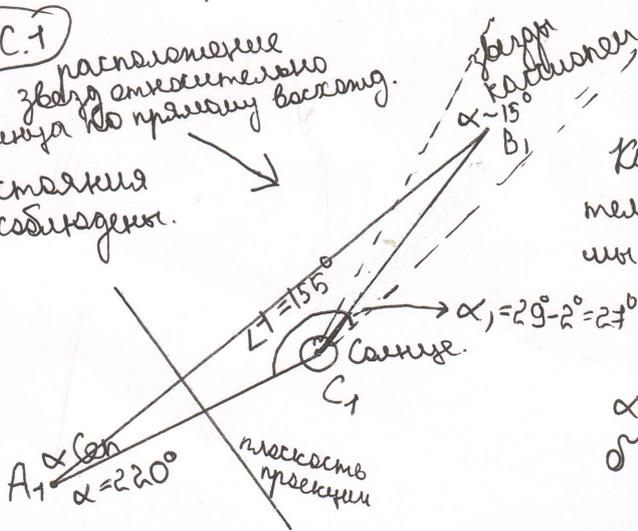 С.1
расположение
звезд относительно
нца по прямому восхожд.
стояния
соблюдены.
звезды
кассиопеи
α~15°
B₁
Ко
тел
мы
∠1=155°
α₁=29°-2°=27°
Солнце.
C₁
α
αCen
A₁
α=220°
плоскость
проекции